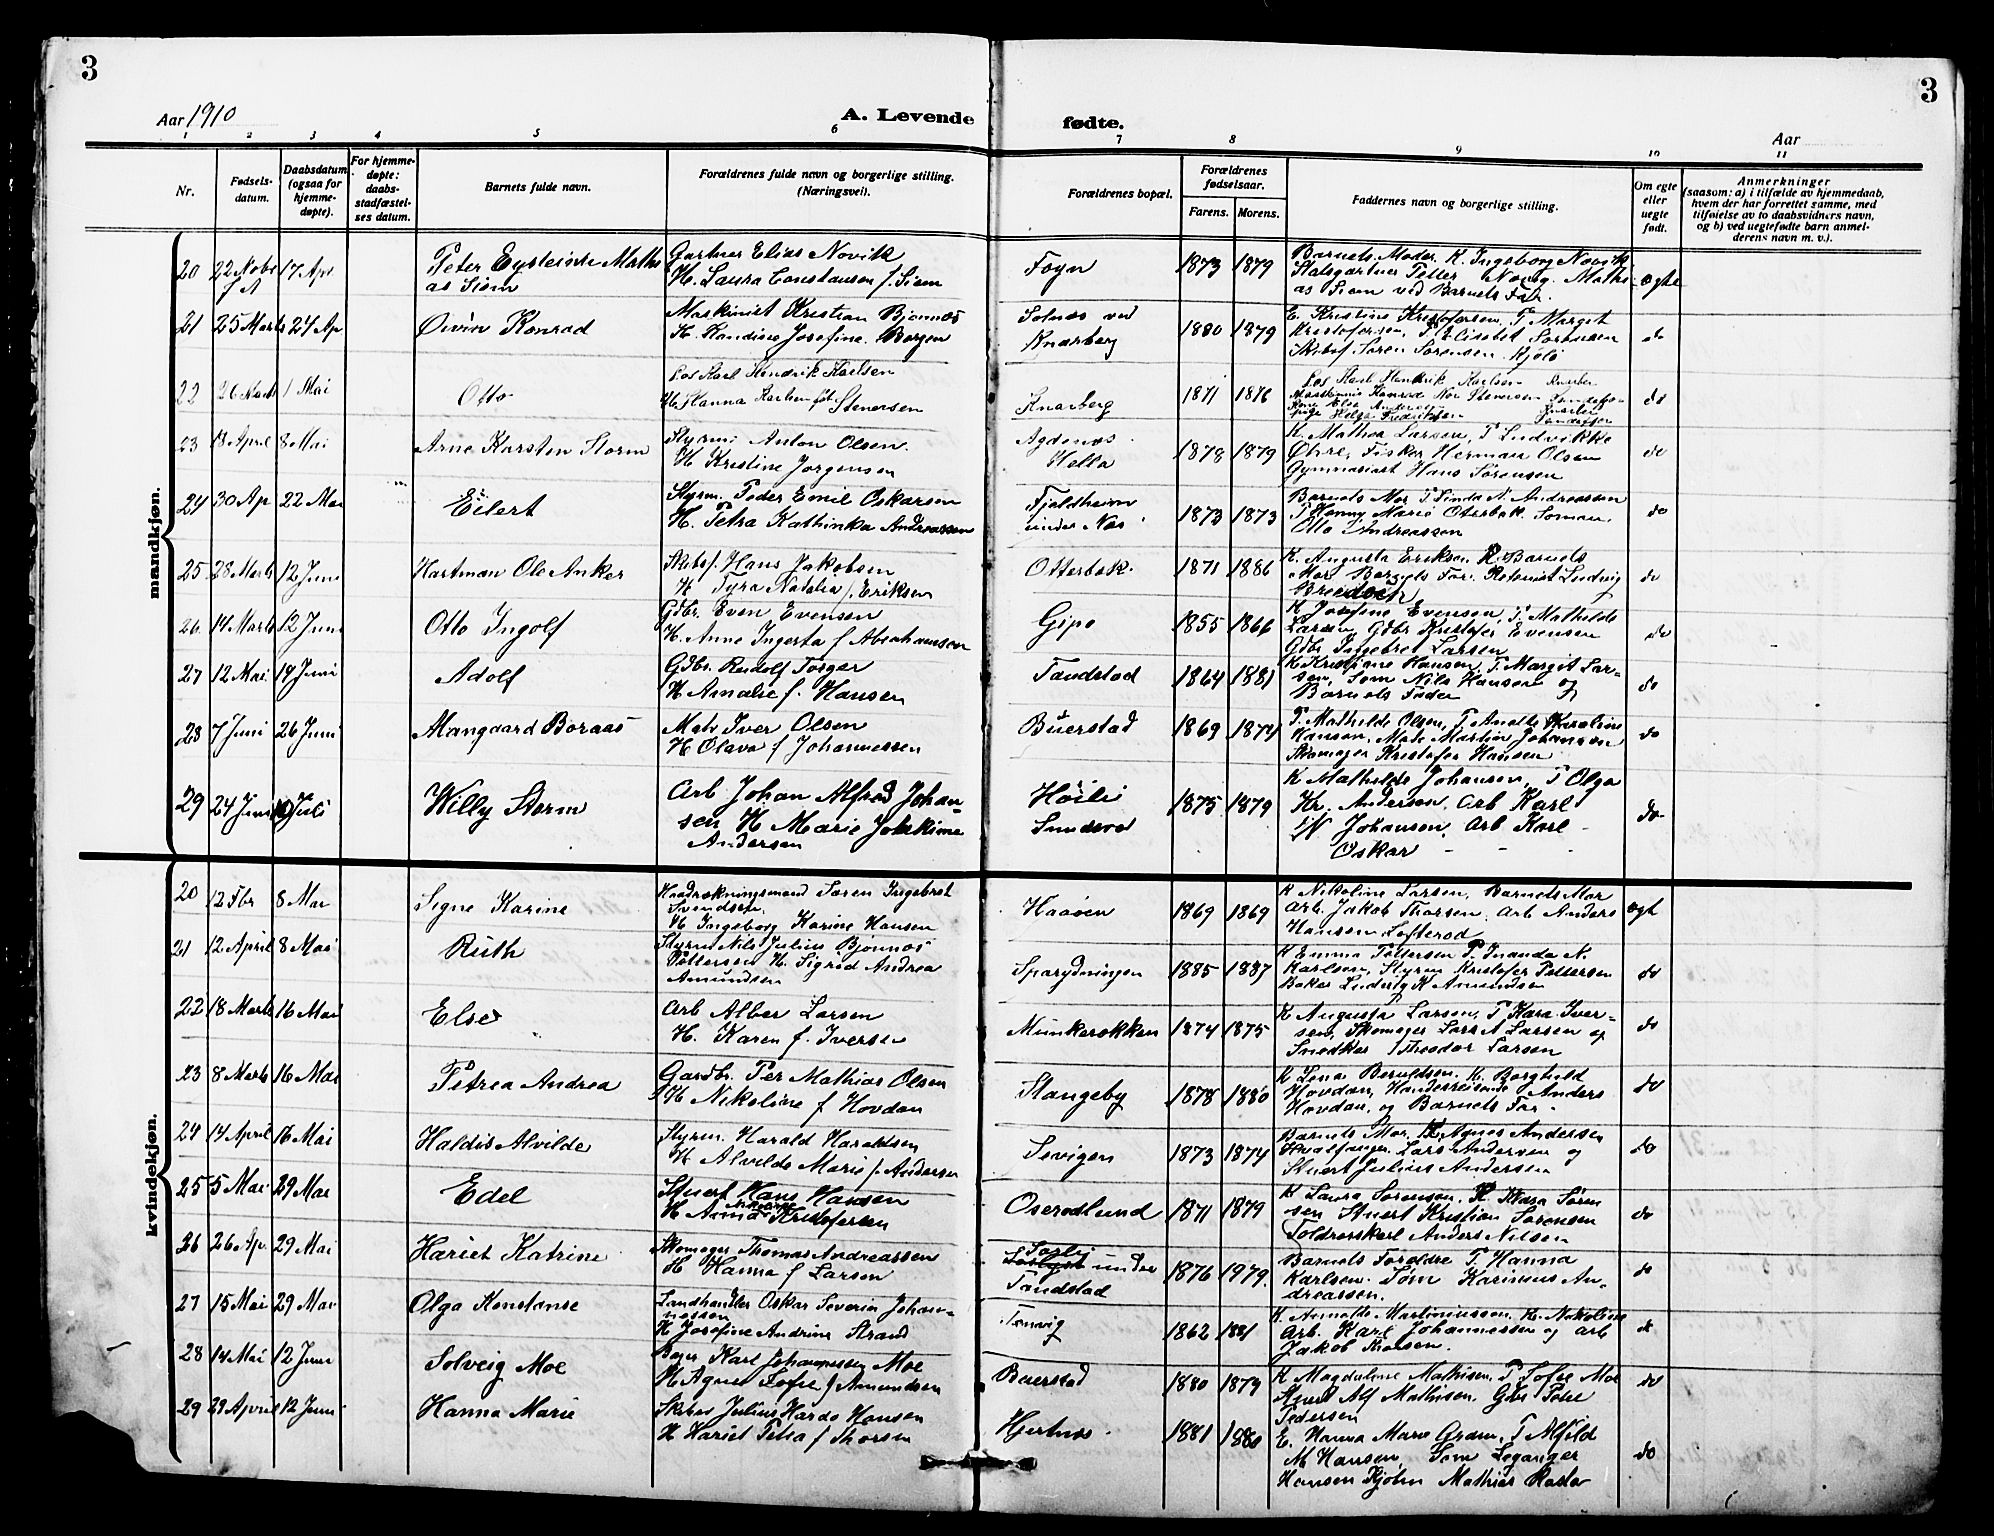 3
3
Aar 1910
A. Levende
fødte.
Aar
1 2 3 4 5 6 7 8 9 10 11
Nr.
Fødsels-
datum.
Daabsdatum
(ogsaa for
hjemme-
døpte).
For hjemme-
døpte:
daabs-
stadfæstel-
ses datum.
Barnets fulde navn.
Forældrenes fulde navn og borgerlige stilling.
(Næringsvei).
Forældrenes bopæl.
Forældrenes
fødselsaar.
Farens. Morens.
Faddernes navn og borgerlige stilling.
Om egte
eller
uegte
født.
Anmerkninger
(saasom: a) i tilfælde av hjemmedaab,
hvem der har forrettet samme, med
tilføielse av to daabsvidners navn,
og b) ved uegtefødte barn anmel-
derens navn m. v.).
mandkjøn.
20 22 Nobr 17 Apr Peter Eysteinde Mathi
as Siom
Gartner Elias Novik
H. Laura Constansen f. Siom
Foyn 1873 1879
Barnets Moder. K. Ingeborg Novik
Petter Novig. Mathi
as Siom ved Barnets Far.
ægte
21 25 Marts 24 Ap Øivin Konrad
Maskinist Kristian Bjønnes
H. Handine Josefine Borgen
Solnes ved
Knarberg
1880 1879
E. Kristine Kristofersen, P. Margit
Kristofersen, P. Elisabet Sørensen
Skibsf. Søren Sørensen. Kjøle
do
22 26 Marts 1 Mai Otto
Los Karl Hendrik Karlsen
H. Hanna Karlsen føt Stenersen
Knarberg 1871 1876
Los Karl Hendrik Karlsen
do
23 18 April 8 Mai Arne Karsten Storm
Styrm Anton Olsen.
H Kristine Jørgensen
Agdenes
Hella
1878 1879
K. Mathea Larsen, P. Ludvikke
Øhre, Fisker Herman Olsen
Gymnasiast Hans Sørensen
do
24 30 Ap 22 Mai Eilert
Styrm. Peder Emil Oskarsen
H. Petra Kathinka Andreassen
Fjeldheim
under Nes
1873 1873
Barnets Mor P. Linda N. Andreassen
P. Hanny Marie Otterbek. Sømand
Otto Andreassen
do
25 28 Marts 12 Juni Hartman Ole Anker
Skibsf. Hans Jakobsen
H Tyra Natalia f. Eriksen
Otterbek. 1871 1886
K. Augusta Eriksen, K. Barnets
Mor Barnets Far. Ludvig
do
26 14 Marts 12 Juni Otto Ingolf
Gdbr. Even Evensen
H. Anne Ingerta f Abrahamsen
Gipø 1855 1866
K Josefine Evensen, P. Mathilde
Larsen, Gdbr Kristofer Evensen
Gdbr Ingebret Larsen
do
27 12 Mai 19 Juni Adolf
Gdbr. Rudolf Torger
H Amalie f. Hansen
Tandstad 1864 1881
K. Kristiane Hansen, P. Margit Lar-
sen, Søm Nils Hansen og
Barnets Fader
do
28 7 Juni 26 Juni Mangaard Boraas
Matr Iver Olsen
H Olava f Johannessen
Buerstad 1869 1874
P. Mathilde Olsen, P. Anette Karoline
Hansen, Matr Martin Johansen
Skomager Kristofer Hansen
do
29 24 Juni Juli Willy Storm
Arb Johan Alfred Johan-
sen H Marie Joakime
Andersen
Høili
Smidsrød
1875 1879
K Mathilde Johansen, P Olga
Kr. Andersen, Arb Karl
W Johansen, Arb Karl
Oskar - - -
do
kvindekjøn.
20 12 Fbr 8 Mar Signe Karine
Søren Ingebret
Svendsen.
H Ingeborg Karine Hansen
Haaøen 1869 1869
K Nikoline Larsen, Barnets Mor
Arb. Jakob Thorsen, Arb Anders
Hansen Lofterød
egt
21 12 April 8 Mai Ruth
Styrm Nils Julius Bjønnes
Pettersen H. Sigrid Andrea
Amundsen
Sparydningen 1885 1887
K Emma Pettersen P. Inanda N.
Karlsen, Styrm Kristofer Pettersen
Baker Ludvig K Amundsen
do
22 18 Marts 16 Mai Else
Arb Alber Larsen
H. Karen f. Iversen
Munkerekken 1874 1875
K Augusta Larsen, P Kara Iver-
sen, Skomager Lars A Larsen og
Snedker Theodor Larsen
do
23 8 Marts 16 Mai Petrea Andrea
Gardbr. Per Mathias Olsen
H Nikoline f Hovdan
Stangeby 1878 1880
K Lena Berntsen. K. Borghild
Hovdan, Handelsreisende Anders
Hovdan, og Barnets Far.
do
24 14 April 16 Mai Haldis Alvilde
Styrm. Harald Haraldsen
H Alvilde Marie f. Andersen
Sevigen 1873 1874
Barnets Mor. K. Agnes Andersen
Hvalfanger Lars Andersen og
Stuert Julius Andersen
do
25 5 Mai 29 Mai Edel
Stuert Hans Hansen
H Anna Kristofersen
Oserødlund 1871 1879
K Laura Sørensen, K. Klara Søren
sen Stuert Kristian Sørensen
Toldrorskarl Anders Nilsen
do
26 26 Ap. 29 Mai Hariet Katrine
Skomager Thomas Andreassen
H Hanna f Larsen
under
Tandstad
1876 1979.
Barnets Foreldre P. Hanna
Karlsen. Søm Karinus An-
dreassen.
do
27 15 Mai 29 Mai Olga Konstanse
Landhandler Oskar Severin Johan-
nessen
H Josefine Andrine Strand
Tenvig 1862 1881
K. Annette Martiniussen, K. Nikoline
Arb. Karl Johannessen og Arb
Jakob Thorsen.
do
28 14 Mai 12 Juni Solveig Moe
Bager Karl Johannessen Moe
H Agnes Sofie f Amundsen
Buerstad 1880 1879
K Magdaline Mathisen, P. Sofie Moe
Stuert Alf Mathisen, Gbr Peder
Pedersen
do
29 29 April 12 Juni Hanna Marie
Skibsf Julius Hardo Hansen
H Hariet Petra f Thorsen
Hjertnes. 1881 1880
E. Hanna Marie Gram, P Alfild
M Hansen, Søm Leganger
Hansen Kjøbm Mathias
do